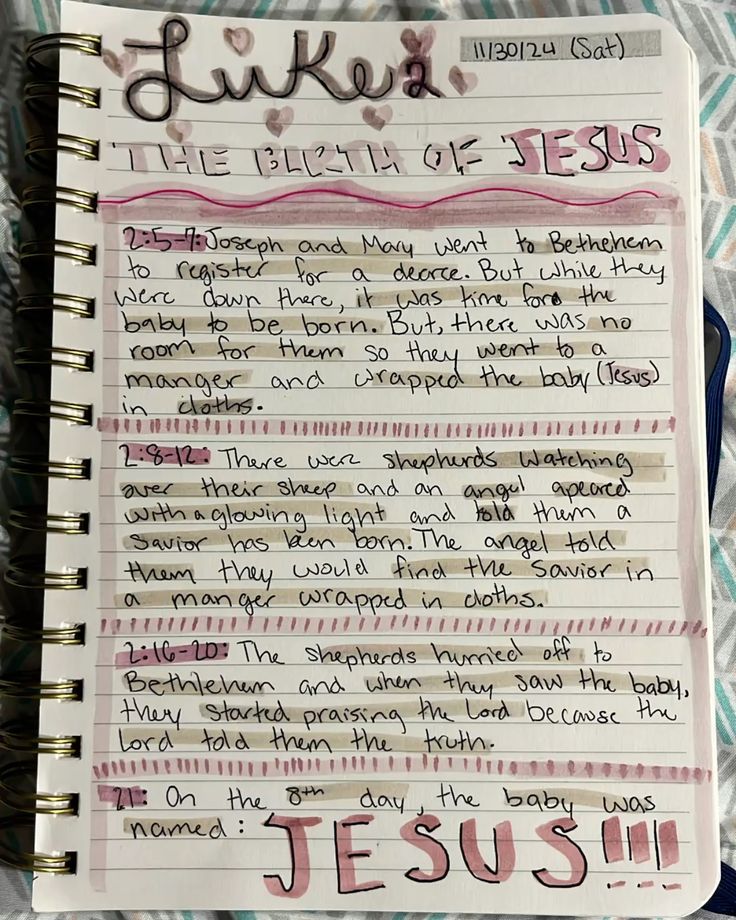 Luke 2
11/30/24 (Sat)
THE BIRTH OF JESUS
2:5-7: Joseph and Mary went to Bethehem
to register for a decree. But while they
were down there, it was time fore the
baby to be born. But, there was no
room for them so they went to a
manger and wrapped the baby (Jesus)
in cloths.
2:8-12: There were shepherds watching
over their sheep and an angel apeared
with a glowing light and told them a
Savior has been born. The angel told
them they would find the Savior in
a manger wrapped in cloths.
2:16-20: The shepherds hurried off to
Bethlehem and when they saw the baby,
they started praising the Lord because the
Lord told them the truth.
21: On the 8th day, the baby was
named: JESUS!!!